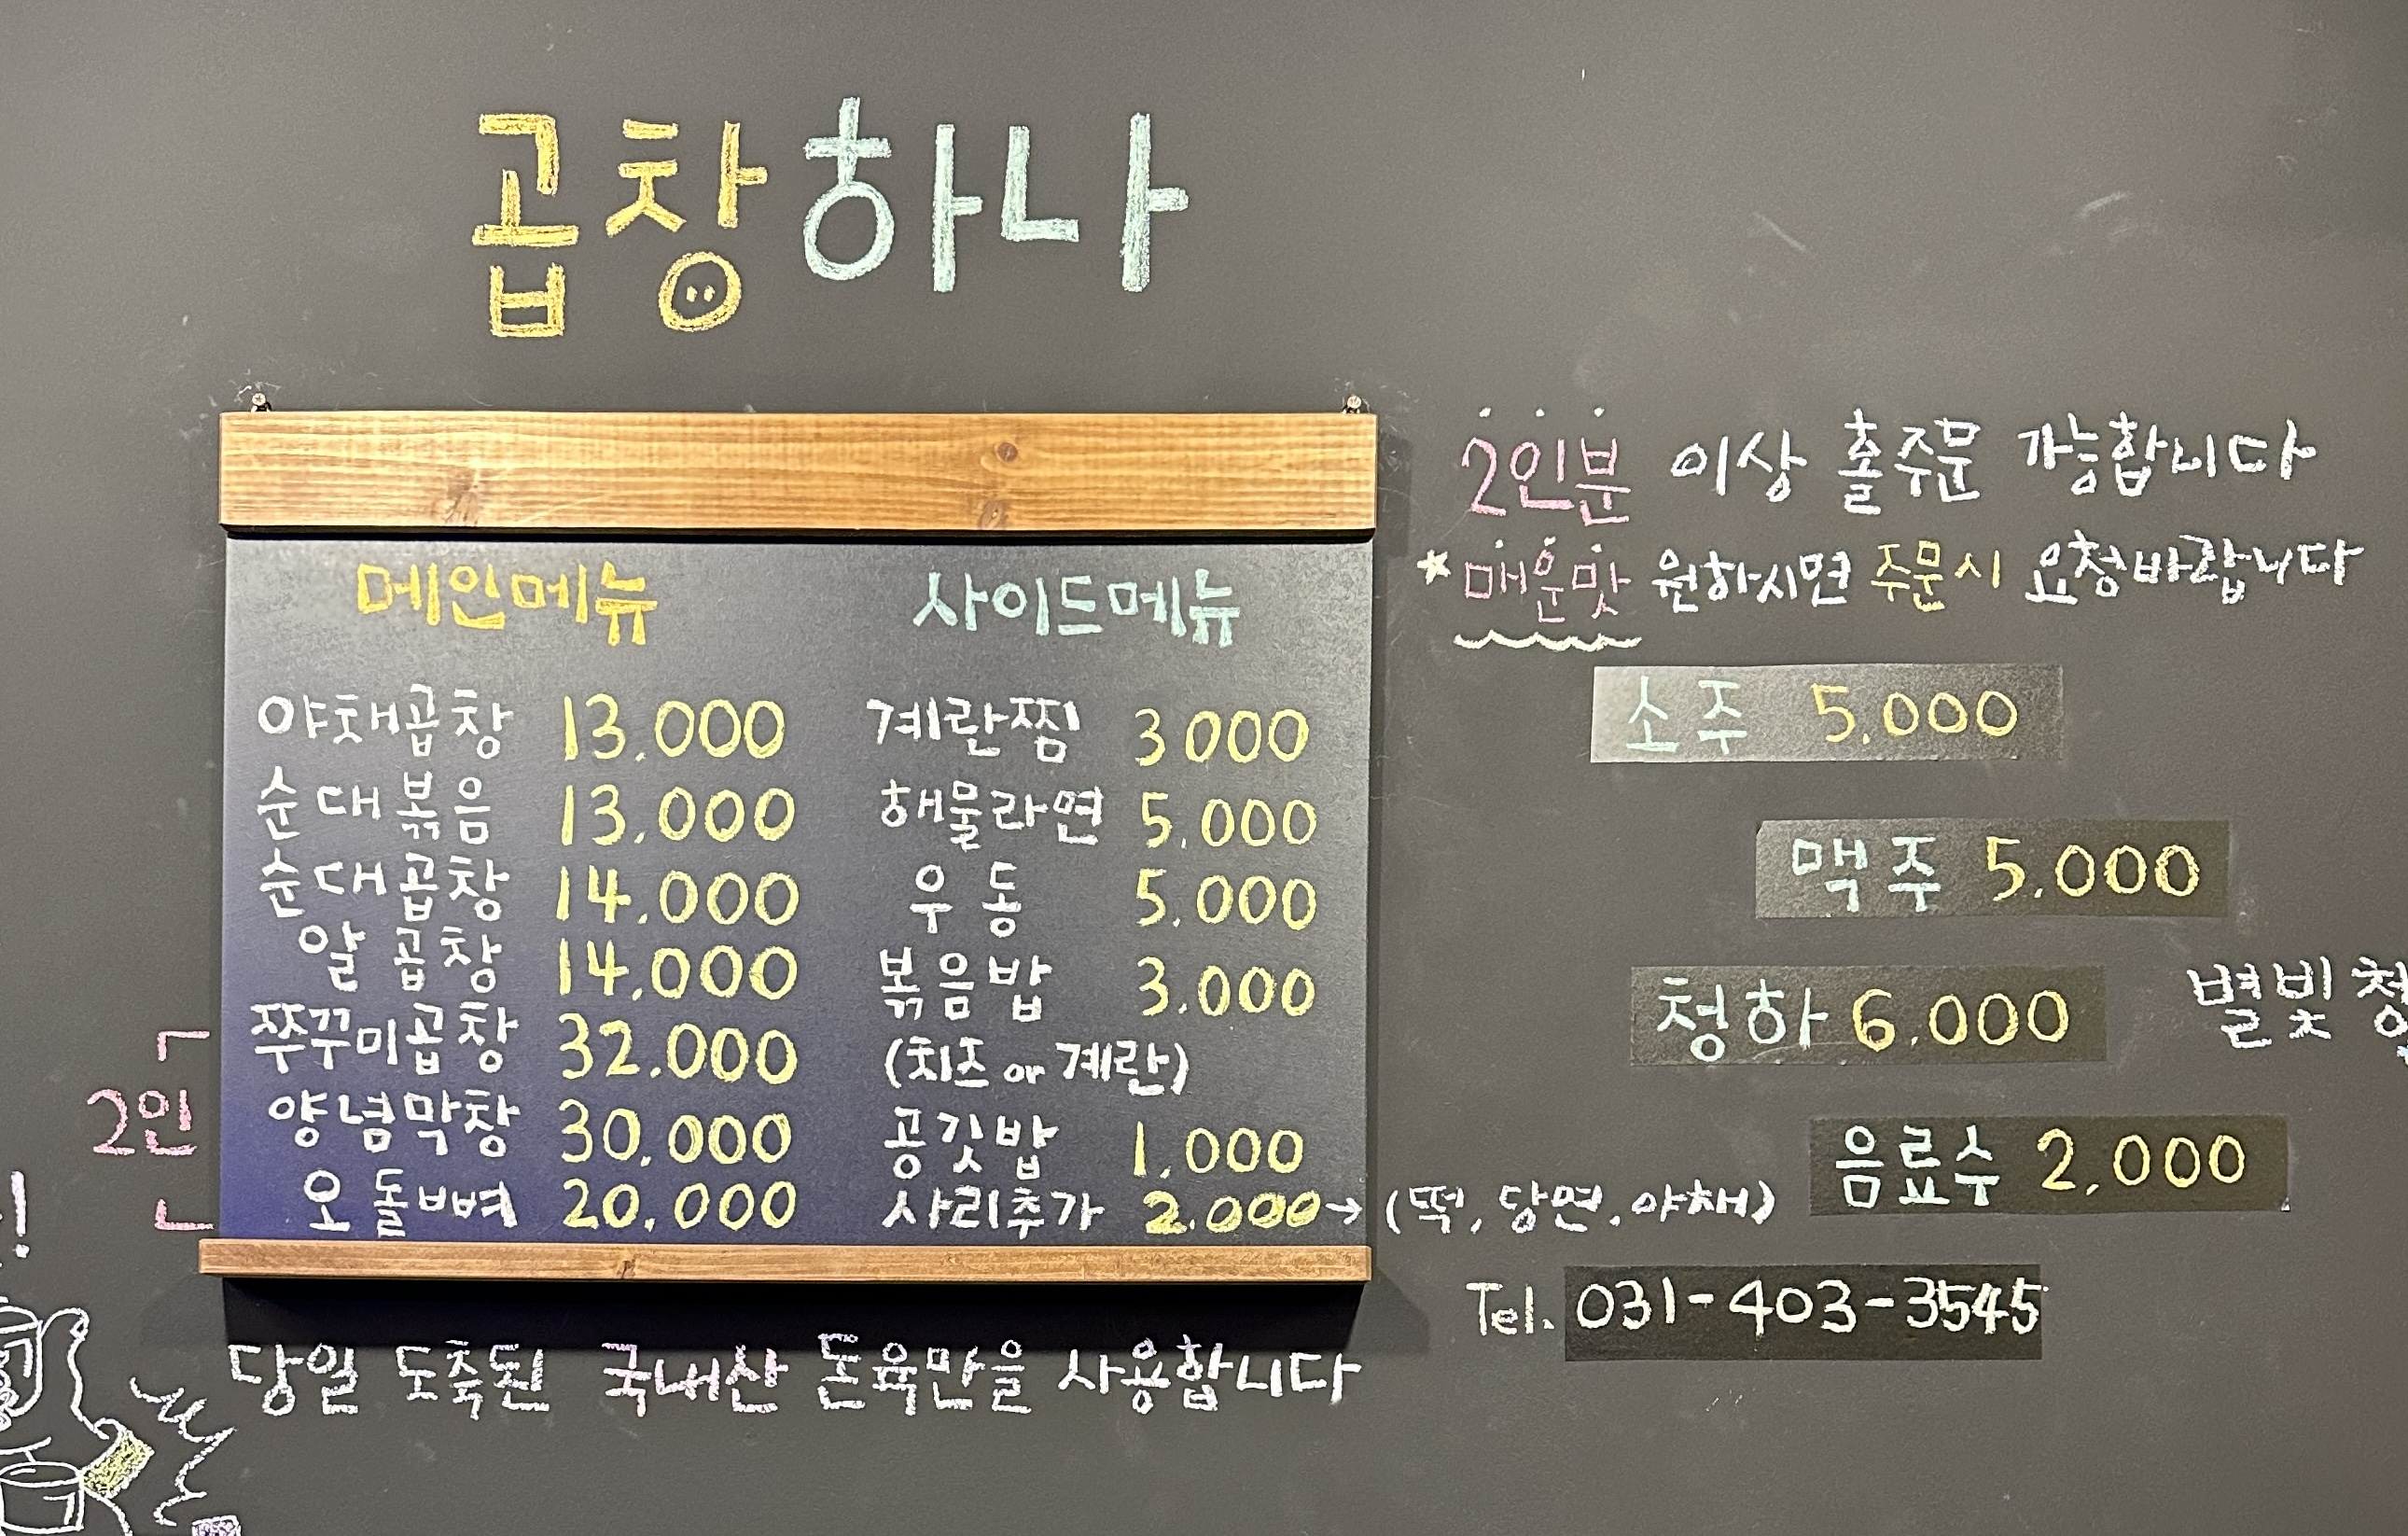 곱창하나
메인메뉴
야채곱창 13,000
순대볶음 13,000
순대곱창 14,000
알곱창 14,000
2인
쭈꾸미곱창 32,000
양념막창 30,000
오돌뼈 20,000
사이드메뉴
계란찜 3000
해물라면 5,000
우동 5,000
볶음밥 3,000
(치즈 or 계란)
공깃밥 1,000
사리추가 2,000→ (떡, 당면, 야채)
당일 도축된 국내산 돈육만을 사용합니다
2인분 이상 홀주문 가능합니다
*매운맛 원하시면 주문시 요청바랍니다
소주 5,000
맥주 5,000
청하 6,000
별빛청
음료수 2,000
Tel. 031-403-3545